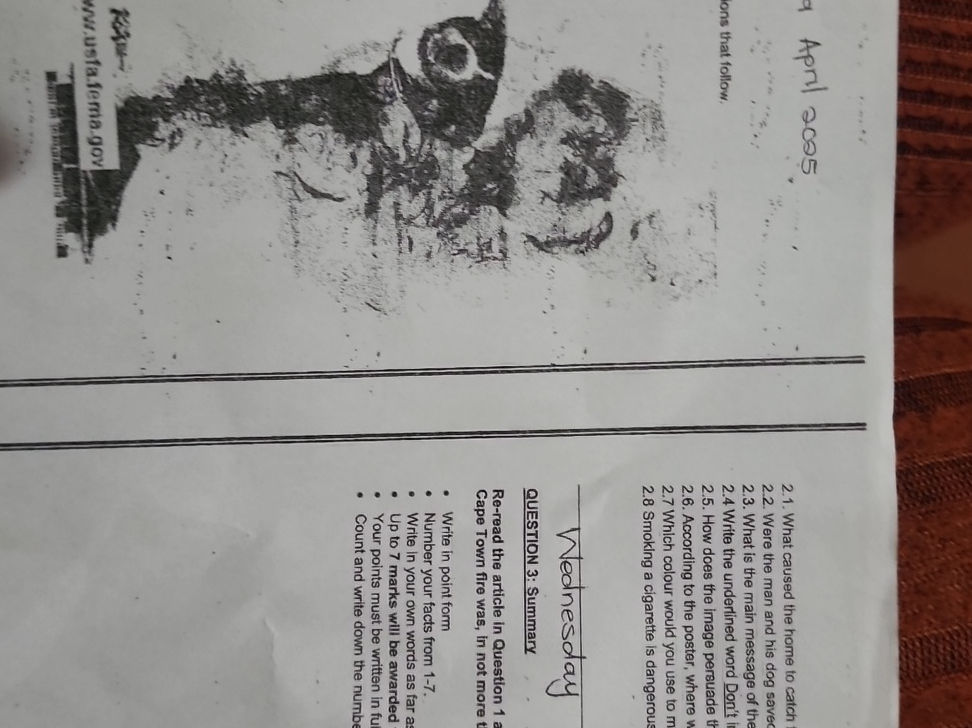 April 2025
ions that follow.
www.usfa.fema.gov
2.1. What caused the home to catch
2.2. Were the man and his dog saved
2.3. What is the main message of the
2.4 Write the underlined word Don't
2.5. How does the image persuade
2.6. According to the poster, where
2.7 Which colour would you use to
2.8 Smoking a cigarette is dangerous
Wednesday
QUESTION 3: Summary
Re-read the article in Question 1
Cape Town fire was, in not more
• Write in point form
• Number your facts from 1-7.
• Write in your own words as far as
• Up to 7 marks will be awarded
• Your points must be written in
• Count and write down the